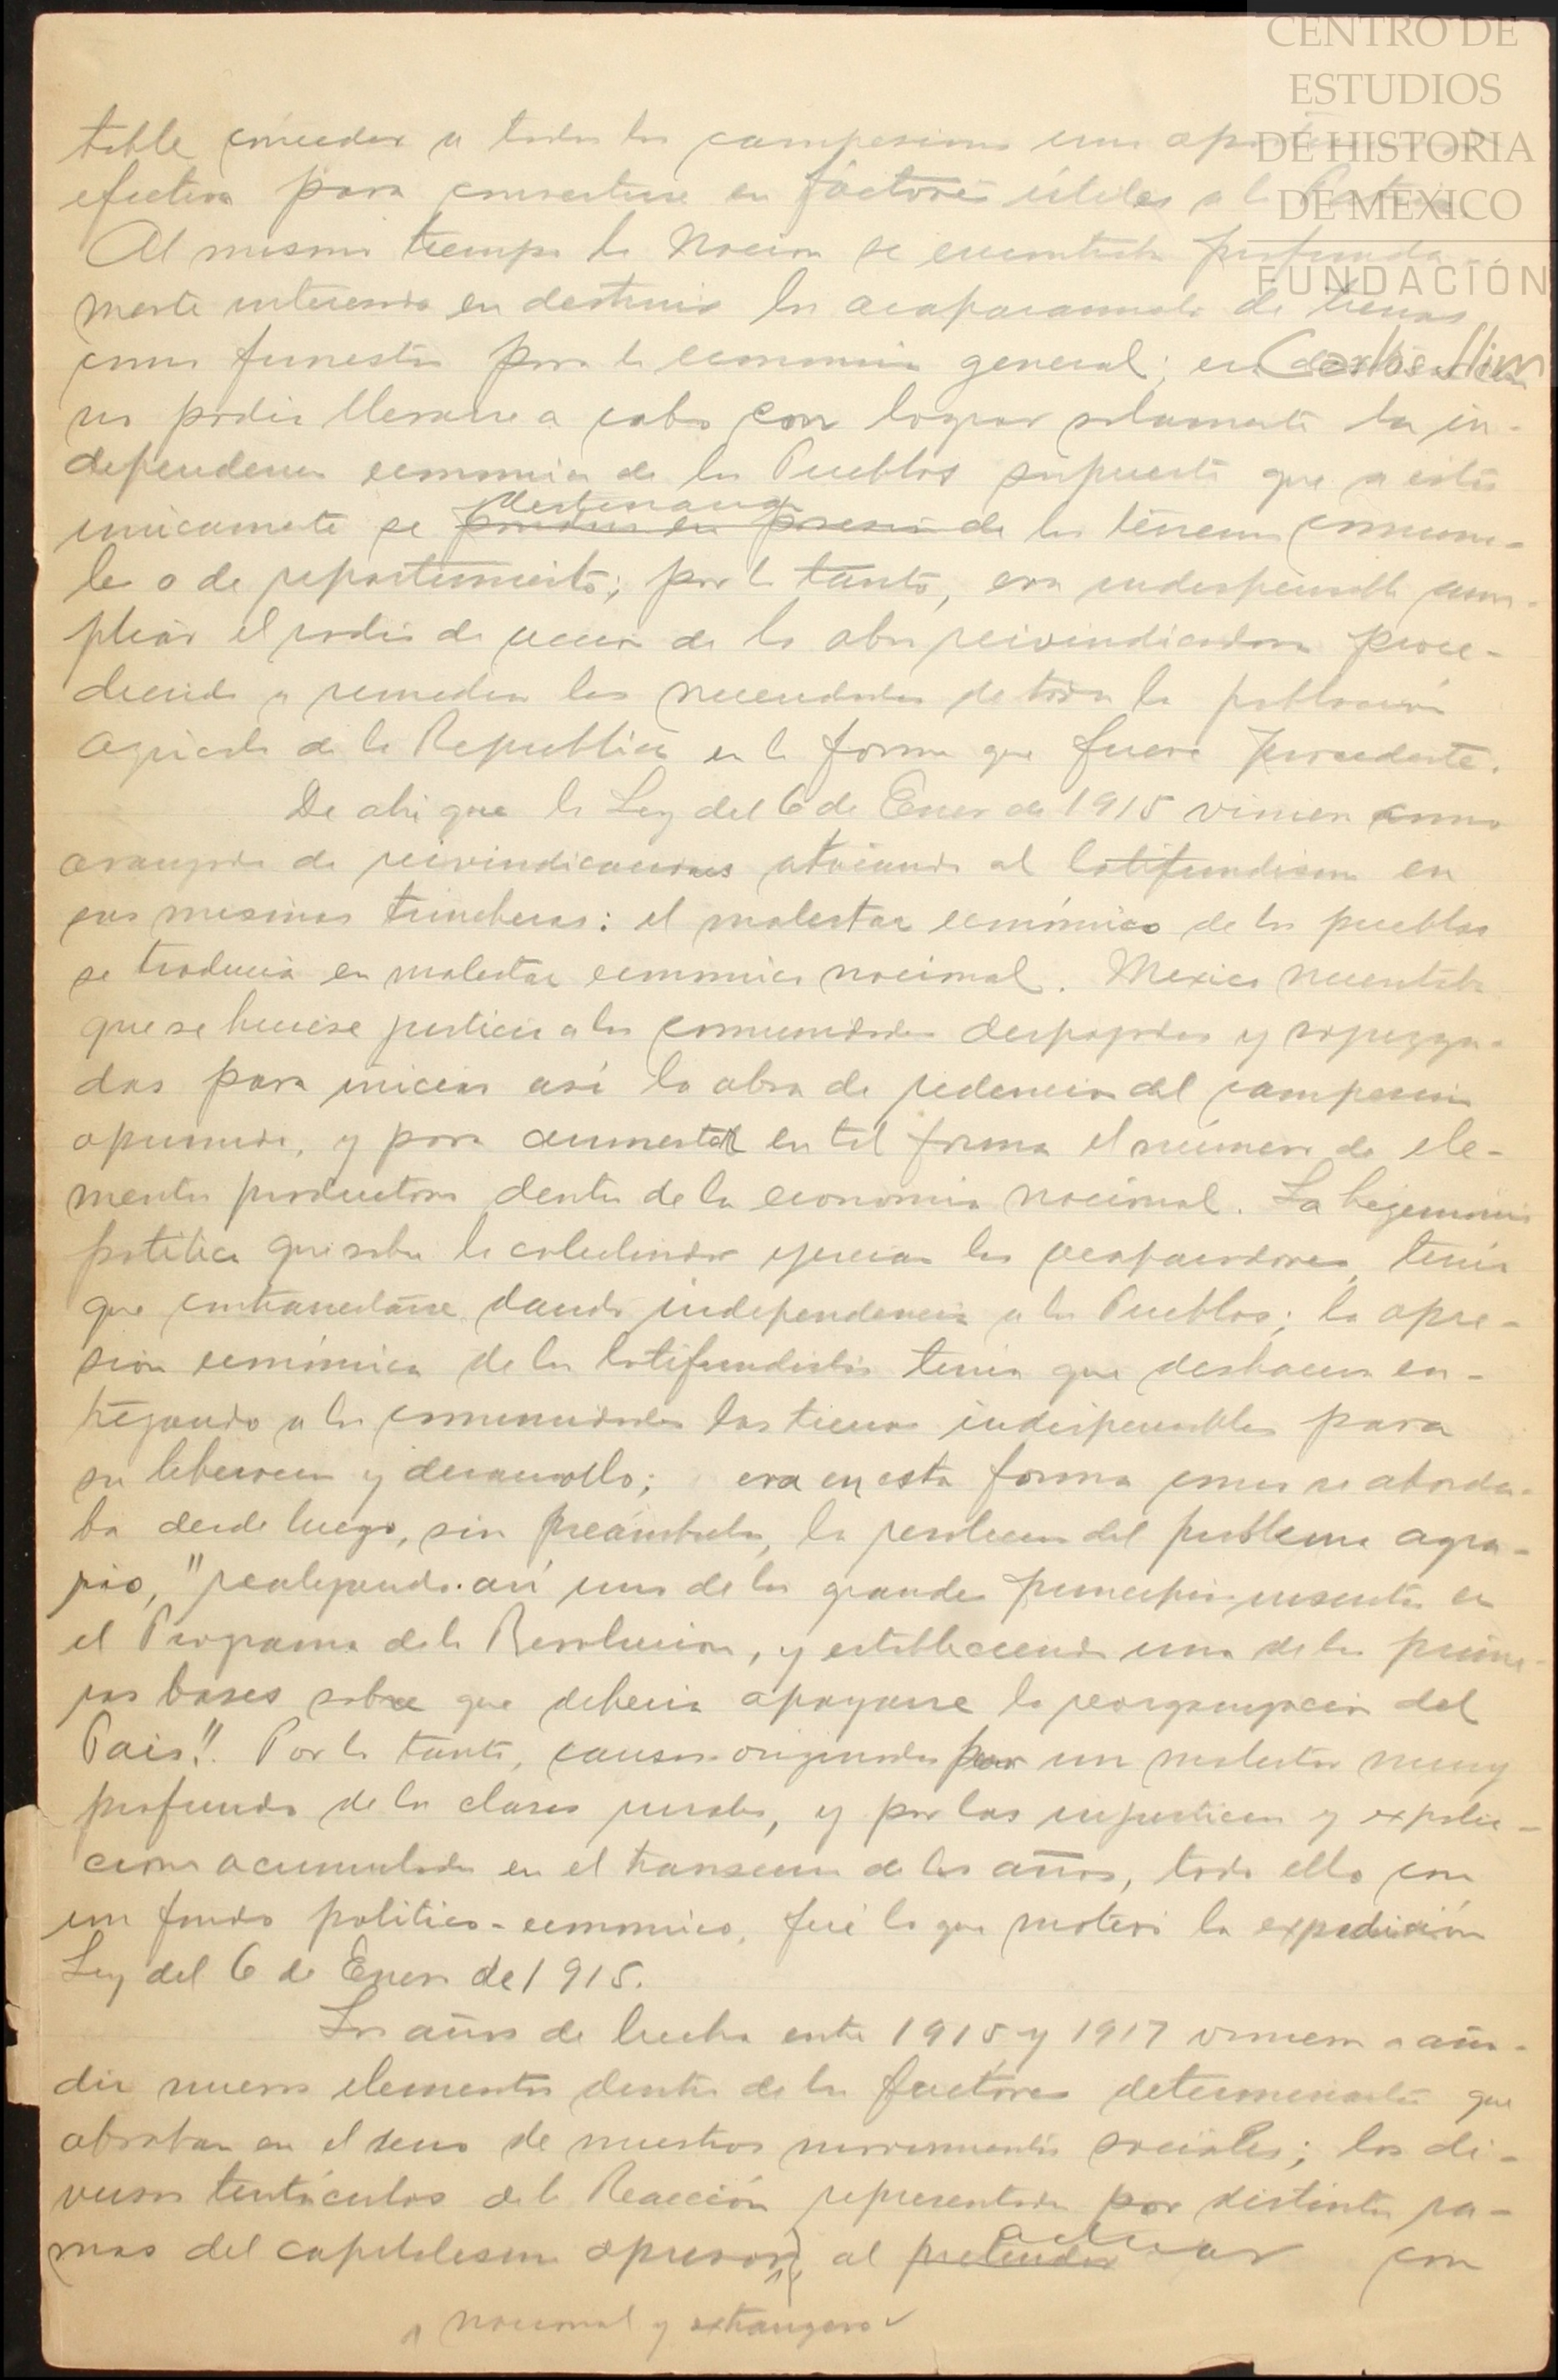 CENTRO DE
ESTUDIOS
DE HISTORIA
DE MEXICO
FUNDACIÓN
Carlos Slim
table conceder a todos los campesinos una
efectiva para convertirse en factores útiles a la Patria.
Al mismo tiempo la Nacion se encontraba profunda-
mente interesada en destruir los acaparamientos de tierras
como funestos para la economia general;
no podia llevarse a cabo con lograr solamente la in-
dependencia economica de los Pueblos supuesto que a estos
unicamente se pondria en posesion destinaba de los terrenos comuna-
les o de repartimiento; por lo tanto, era indispensable am-
pliar el radio de accion de la obra reivindicadora proce-
diendo a remediar las necesidades de toda la poblacion
agricola de la Republica en la forma que fuera procedente.
De ahi que la Ley del 6 de Enero de 1915 viniera como
avanzada de reivindicaciones atacando al latifundismo en
sus mismas trincheras: el malestar económico de los pueblos
se traducia en malestar economico nacional. Mexico necesitaba
que se hiciese justicia a las comunidades despojadas y
das para iniciar así la obra de redencion del campesino
oprimido, y para aumentar en tal forma el número de ele-
mentos productores dentro de la economia nacional. La hegemonia
politica que sobre la colectividad ejercian los acaparadores, tenia
que contrarrestarse dando independencia a los Pueblos; la opre-
sion económica de los latifundistas tenia que deshacerse en-
tregando a las comunidades las tierras indispensables para
su liberacion y desarrollo; era en esta forma como se aborda-
ba desde luego, sin preámbulos, la resolucion del problema agra-
rio, "realizando así uno de los grandes principios inscritos en
el Programa de la Revolucion, y estableciendo una de las prime-
ras bases sobre que deberia apoyarse la reorganizacion del
Pais". Por lo tanto, causas originadas por un malestar muy
profundo de las clases rurales, y por las injusticias y expolia-
ciones acumuladas en el transcurso de los años, todo ello con
un fondo politico-economico, fué lo que motivó la expedición
Ley del 6 de Enero de 1915.
Los años de lucha entre 1915 y 1917 vinieron a aña-
dir nuevos elementos dentro de los factores determinantes que
obraban en el seno de nuestros movimientos sociales; los di-
versos tentáculos de la Reacción representada por distintas ra-
mas del capitalismo opresor, al pretender actuar con
nacional y extrangero